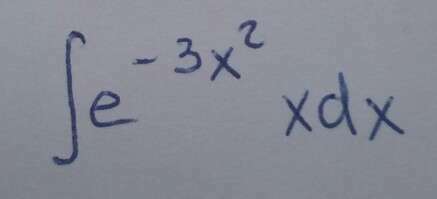 ∫e^{-3x^2} xdx